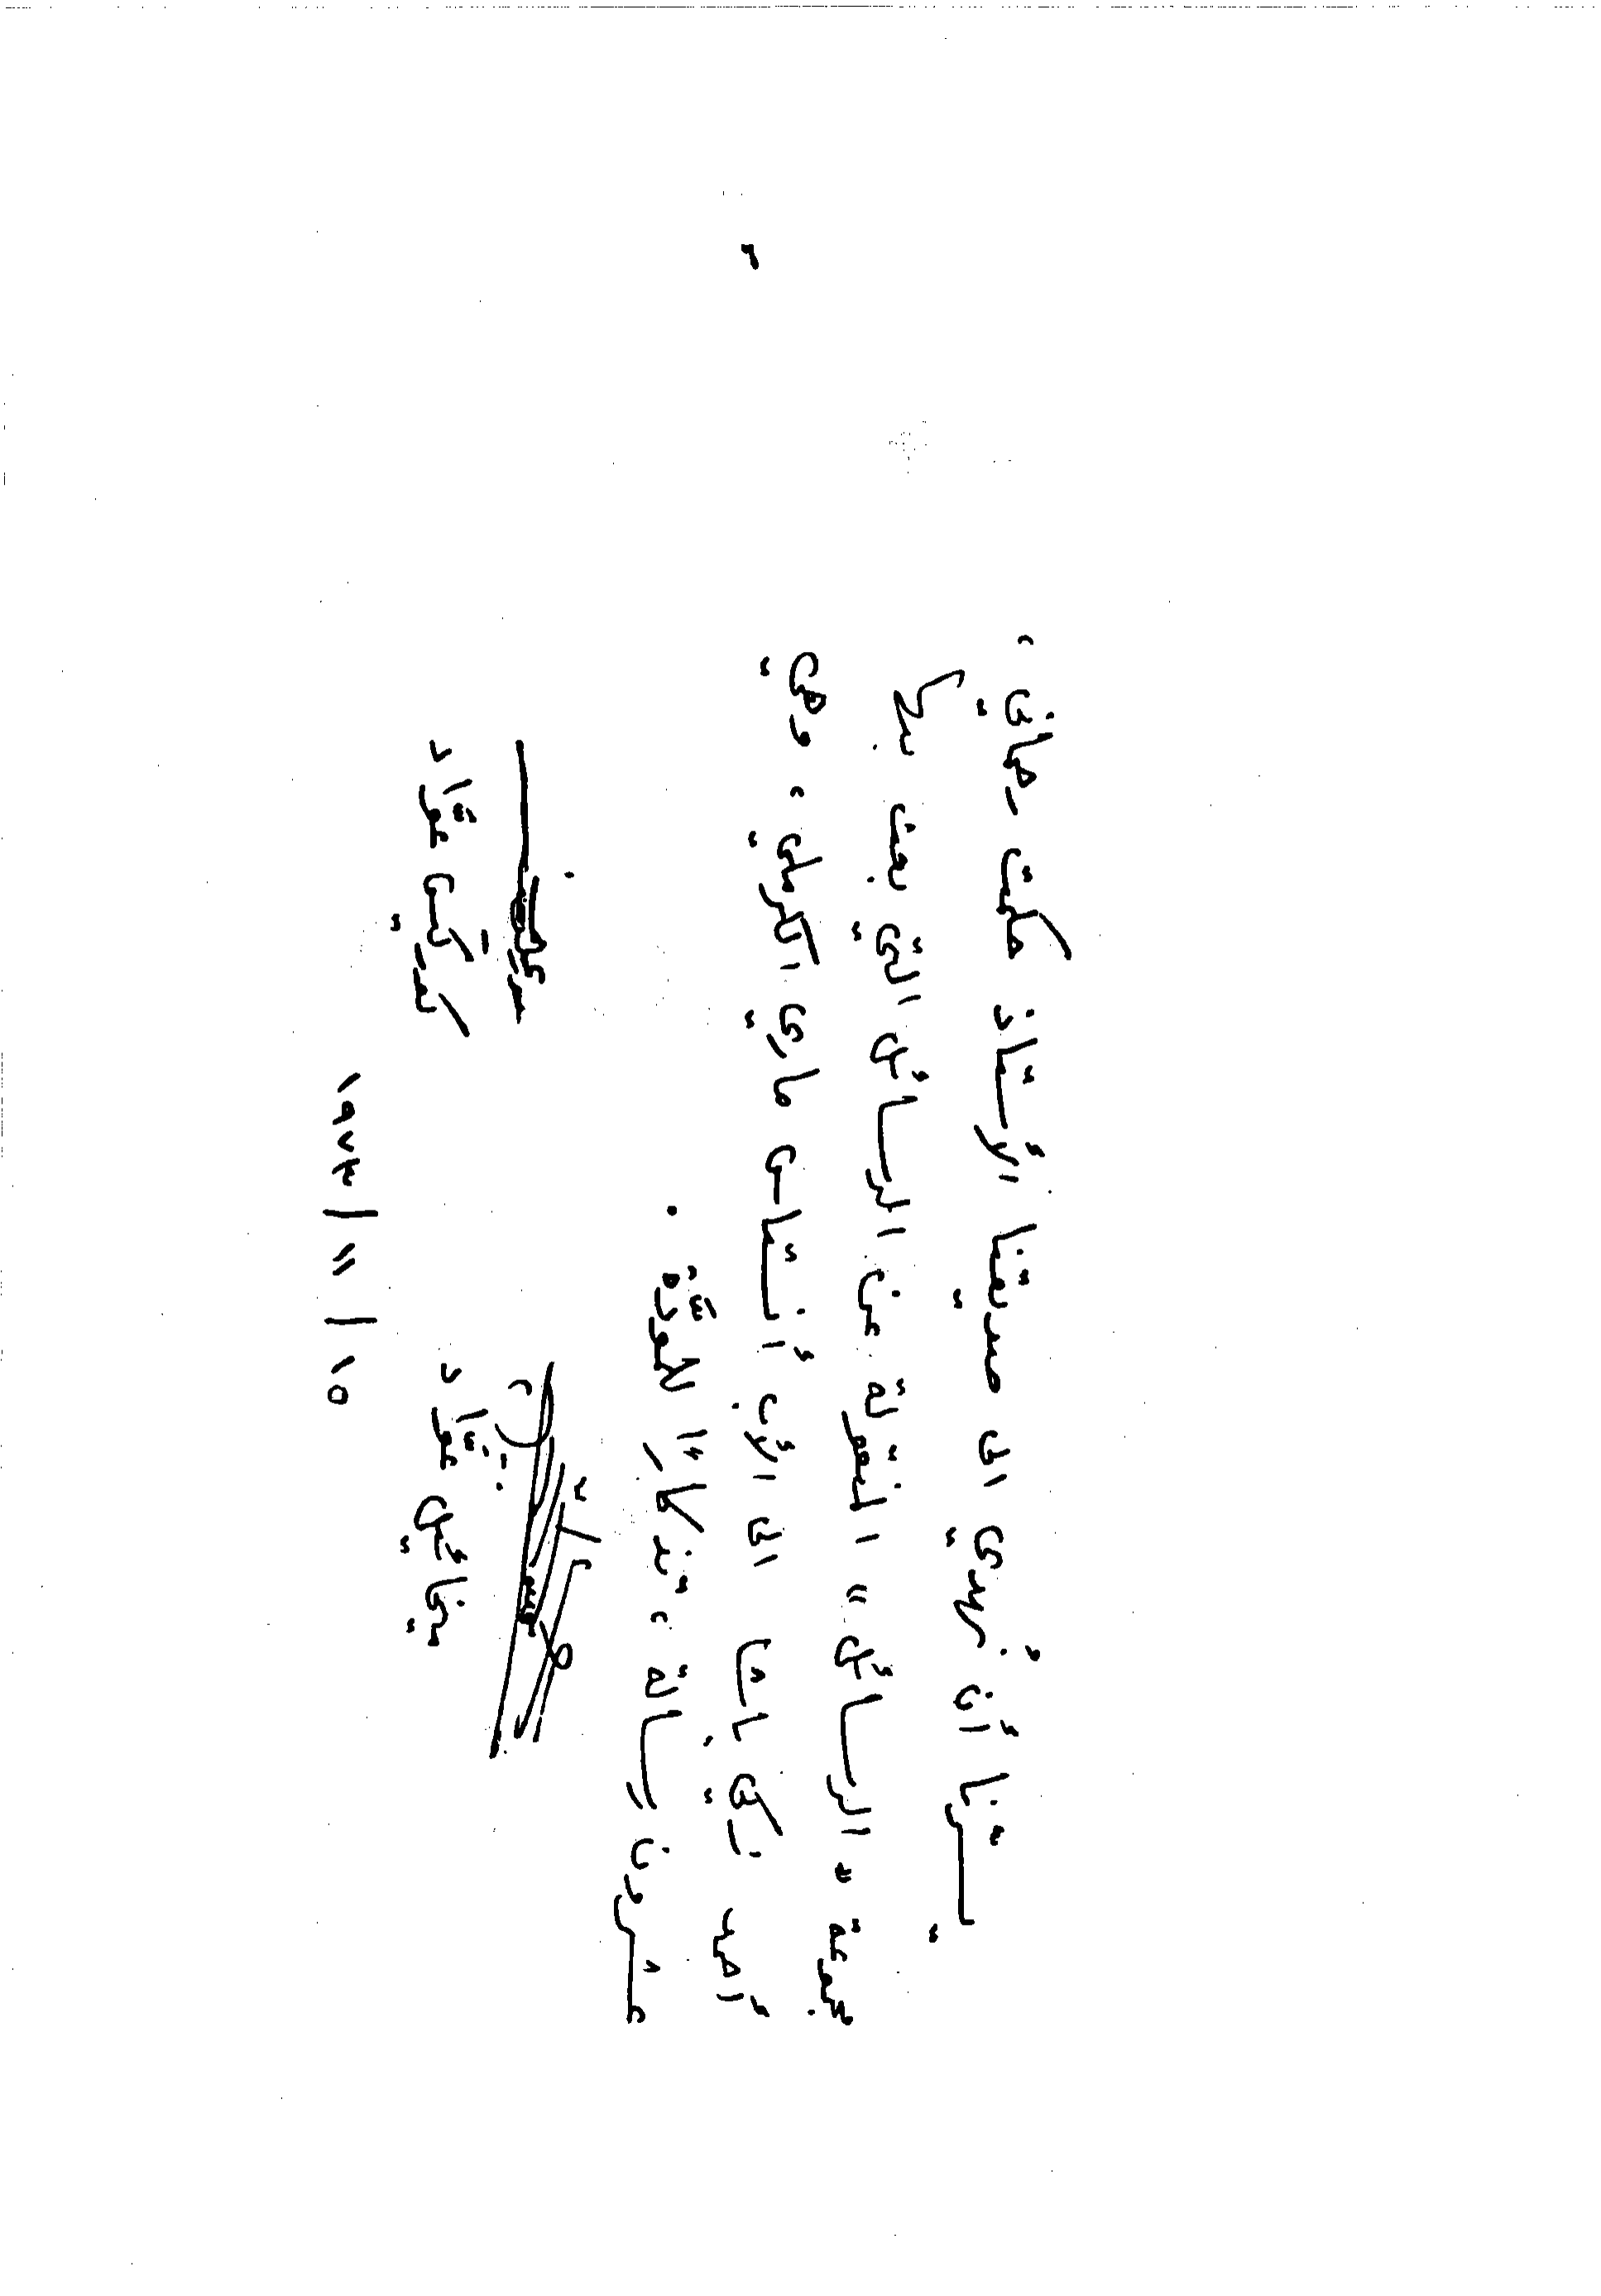 يسرنا أن نُهدي الى صديقنا الأستاذ حكمت رحماني ،
مجموعة « الرسائل » المنقولة عن الرسائل التي بعث بها
أحمد زكي باشا الى الأب أنستاس ماري الكرملي ، وهي
عشرون رسالة ، تذكارًا للمودّة .
ميخائيل عوّاد
كوركيس عوّاد
١٥ / ١١ / ١٩٧٣